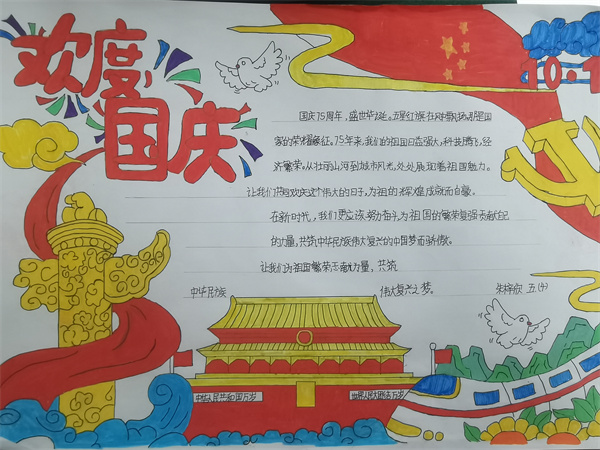 欢度
国庆
10.1
国庆75周年，盛世华诞。五星红旗在风中飘扬，那是国
家的荣耀象征。75年来，我们的祖国日益强大，科技腾飞，经
济繁荣。从壮丽山河到城市风光，处处展现着祖国魅力。
让我们共同欢庆这个伟大的日子，为祖国的辉煌成就而自豪。
在新时代，我们更应该努力奋斗，为祖国的繁荣富强贡献自己
的力量，共筑中华民族伟大复兴的中国梦而骄傲。
让我们为祖国繁荣贡献力量，共筑
中华民族 伟大复兴之梦。 五(4)
中华人民共和国万岁 世界人民大团结万岁